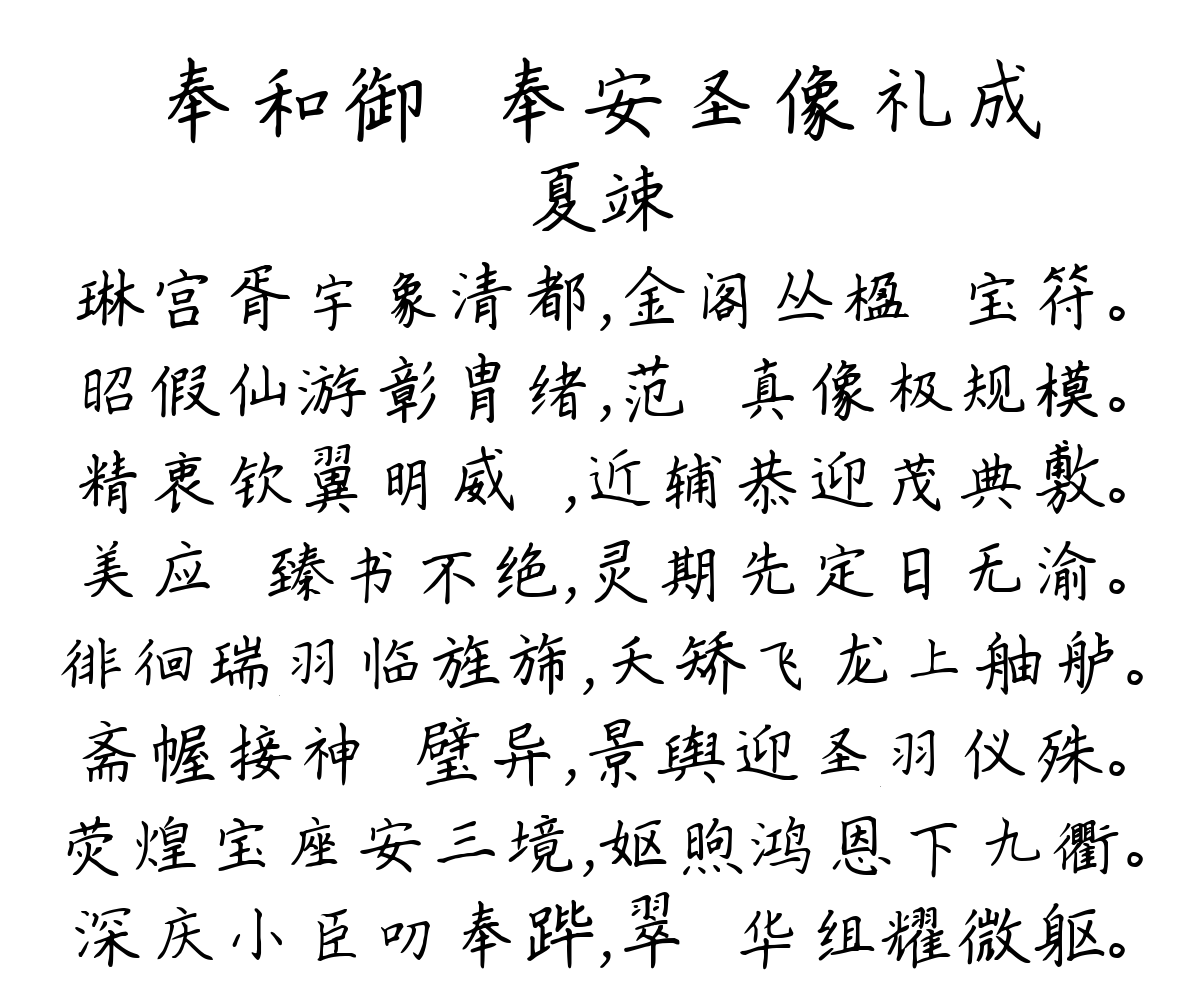 奉和御 奉安圣像礼成
夏竦
琳宫胥宇象清都,金阁丛楹 宝符。
昭假仙游彰胄绪,范 真像极规模。
精衷钦翼明威 ,近辅恭迎茂典敷。
美应 臻书不绝,灵期先定日无渝。
徘徊瑞羽临旌旆,夭矫飞龙上舳舻。
斋幄接神 璧异,景舆迎圣羽仪殊。
荧煌宝座安三境,妪煦鸿恩下九衢。
深庆小臣叨奉跸,翠 华组耀微躯。